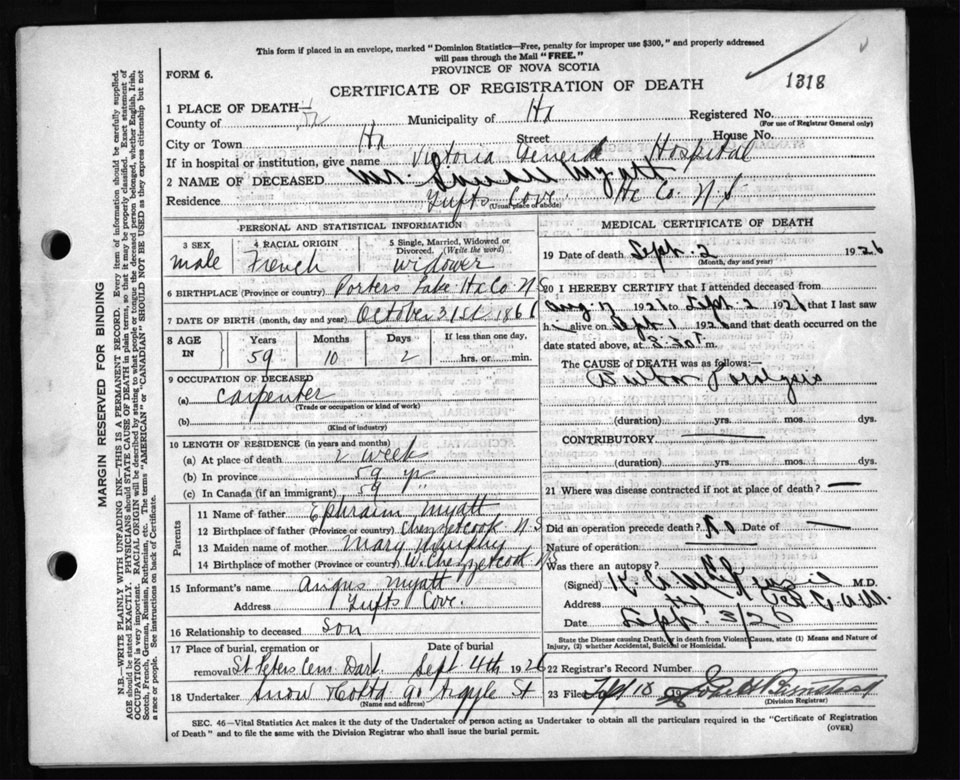 This form if placed in an envelope, marked "Dominion Statistics—Free, penalty for improper use $300," and properly addressed
will pass through the Mail "FREE."
FORM 6.
PROVINCE OF NOVA SCOTIA
1318
CERTIFICATE OF REGISTRATION OF DEATH
1 PLACE OF DEATH—
County of Hx Municipality of Hx Registered No.
(For use of Registrar General only)
City or Town Hx Street House No.
If in hospital or institution, give name Victoria General Hospital
2 NAME OF DECEASED Mr. Myatt
Residence Tufts Cove Hx Co. N.S
(Usual place of abode)
PERSONAL AND STATISTICAL INFORMATION
3 SEX 4 RACIAL ORIGIN 5 Single, Married, Widowed or
Divorced. (Write the word)
male French widower
6 BIRTHPLACE (Province or country) Porters Lake Hx Co N.S
7 DATE OF BIRTH (month, day and year) October 31st 1866
8 AGE IN Years Months Days If less than one day,
59 10 2 hrs. or min.
9 OCCUPATION OF DECEASED
(a) Carpenter
(Trade or occupation or kind of work)
(b)
(Kind of industry)
10 LENGTH OF RESIDENCE (in years and months)
(a) At place of death 2 week
(b) In province 59 yr.
(c) In Canada (if an immigrant) 59
Parents
11 Name of father Ephraim Myatt
12 Birthplace of father (Province or country) Chezzetcook N.S
13 Maiden name of mother Mary Murphy
14 Birthplace of mother (Province or country) W. Chezzetcook N.S
15 Informant's name Angus Myatt
Address Tufts Cove.
16 Relationship to deceased son
17 Place of burial, cremation or Date of burial
removal St Peters Cem Dart. Sept 4th 1926
18 Undertaker Snow & Co Ltd 90 Argyle St
(Name and address)
MEDICAL CERTIFICATE OF DEATH
19 Date of death Sept 2 1926
(Month, day and year)
20 I HEREBY CERTIFY that I attended deceased from
Aug 17 1926 to Sept 2 1926 that I last saw
h alive on Sept 1 1926 and that death occurred on the
date stated above, at m.
The CAUSE OF DEATH was as follows:—
Bulbar Paralysis
(duration) yrs. mos. dys.
CONTRIBUTORY
(duration) yrs. mos. dys.
21 Where was disease contracted if not at place of death? —
Did an operation precede death? No Date of —
Nature of operation
Was there an autopsy?
(Signed) M.D.
Address
Date Sept. 3/26
State the Disease causing Death, or in death from Violent Causes, state (1) Means and Nature of
Injury, (2) whether Accidental, Suicidal or Homicidal.
22 Registrar's Record Number
23 Filed Sept 18 1926
(Division Registrar)
SEC. 46—Vital Statistics Act makes it the duty of the Undertaker of person acting as Undertaker to obtain all the particulars required in the "Certificate of Registration
of Death" and to file the same with the Division Registrar who shall issue the burial permit.
(OVER)
MARGIN RESERVED FOR BINDING
N.B.—WRITE PLAINLY WITH UNFADING INK—THIS IS A PERMANENT RECORD. Every item of information should be carefully supplied.
AGE should be stated EXACTLY. PHYSICIANS should STATE CAUSE OF DEATH in plain terms, so that it may be properly classified. Exact statement of
OCCUPATION is very important. RACIAL ORIGIN will be described by stating to what people or tongue the deceased person belonged, whether English, Irish,
Scotch, French, German, Russian, Ruthenian, etc. The terms "AMERICAN" or "CANADIAN" SHOULD NOT BE USED as they express citizenship but not
a race or people. See instructions on back of Certificate.